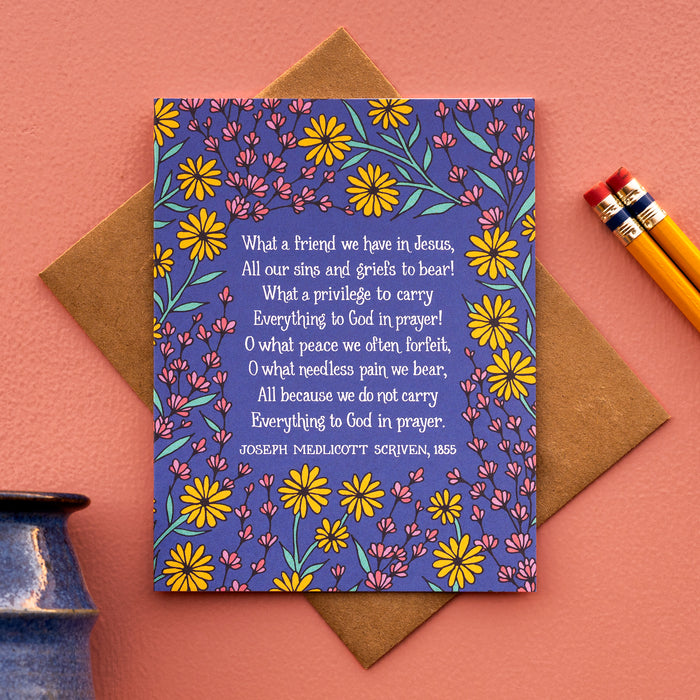 What a friend we have in Jesus,
All our sins and griefs to bear!
What a privilege to carry
Everything to God in prayer!
O what peace we often forfeit,
O what needless pain we bear,
All because we do not carry
Everything to God in prayer.
JOSEPH MEDLICOTT SCRIVEN, 1855